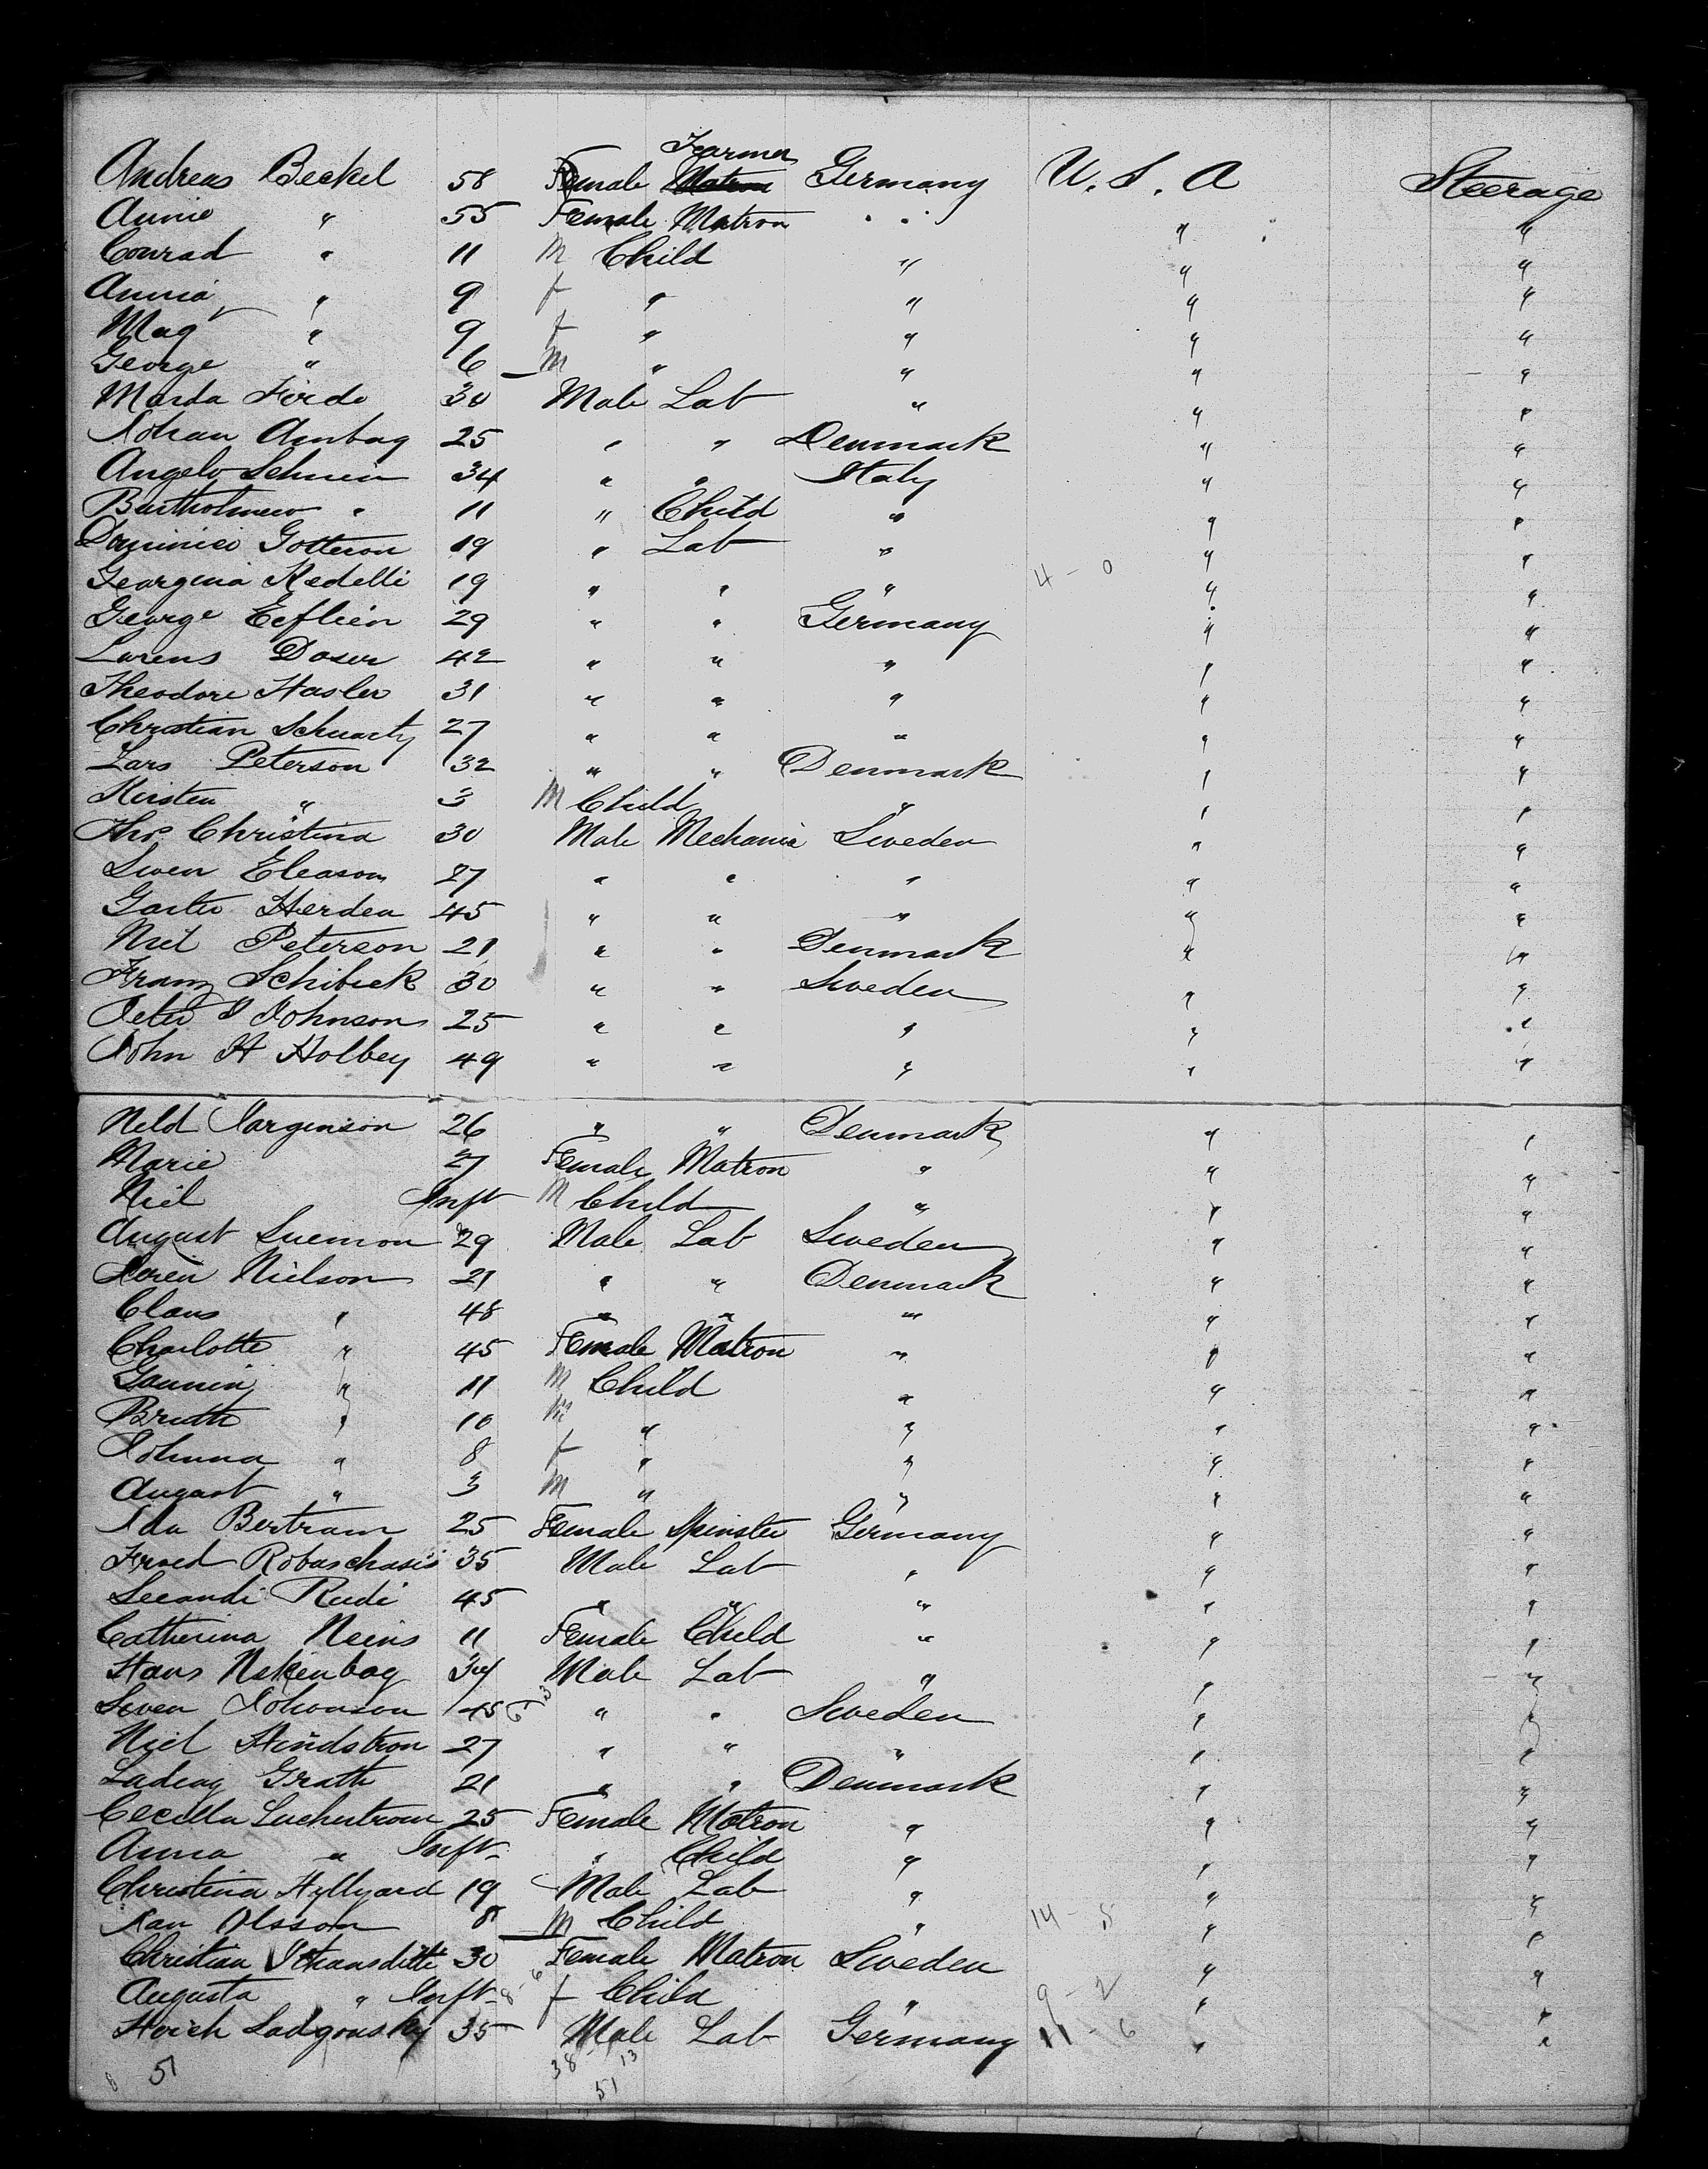 Farmer
Andreas Beckel 58 Female Matron Germany U. S. A Steerage
Annie " 55 Female Matron " " "
Conrad " 11 M Child " " "
Annia " 9 f " " " "
Mag " 9 f " " " "
George " 6 M " " " "
Marda 30 Male Lab " " "
Johan Ambag 25 " " Denmark " "
Angelo Schuin 34 " " Italy " "
Bartholmew " 11 " Child " " "
Dominici Gotteron 19 " Lab " " "
Georgina Redelli 19 " " " 4 - 0 " "
George Eeflein 29 " " Germany " "
Lorens Doser 42 " " " " "
Theodore Hasler 31 " " " " "
Christian Schuartz 27 " " " " "
Lars Peterson 32 " " Denmark " "
Kirsten " 3 M Child " " "
Thos Christina 30 Male Mechanic Sweden " "
Swen Eleason 27 " " " " "
Herden 45 " " " " "
Niel Peterson 21 " " Denmark " "
Franz Schibick 30 " " Sweden " "
Peter Johnson 25 " " " " "
John H Holbey 49 " " " " "
Neld Jorgenson 26 " " Denmark " "
Marie 27 Female Matron " " "
Niel Inft M Child " " "
August Suemon 29 Male Lab Sweden " "
Soren Nielson 21 " " Denmark " "
Claus " 48 " " " " "
Charlotte " 45 Female Matron " " "
" 11 M Child " " "
Bruthe " 10 M " " " "
Johnna " 8 f " " " "
August " 3 M " " " "
Ida Bertram 25 Female Spinster Germany " "
Robaschasis 35 Male Lab " " "
Secandi Rudi 45 " " " " "
Catherina Neins 11 Female Child " " "
Hans Nekenbag 34 Male Lab " " "
Swen Johonson 45 " " Sweden " "
Niel Hindstron 27 " " " " "
Ladeag Grath 21 " " Denmark " "
Cecilla Luchustrom 25 Female Matron " " "
Anna " Inft " Child " " "
Christina Hyllyard 19 Male Lab " " "
Jan Olsson 8 M Child " 14 - 5 " "
Christian 30 Female Matron Sweden " "
Augusta " Inft f Child " 9 - 2 " "
Ladgousky 35 Male Lab Germany 11 - 6 " "
51 38 - 13
51